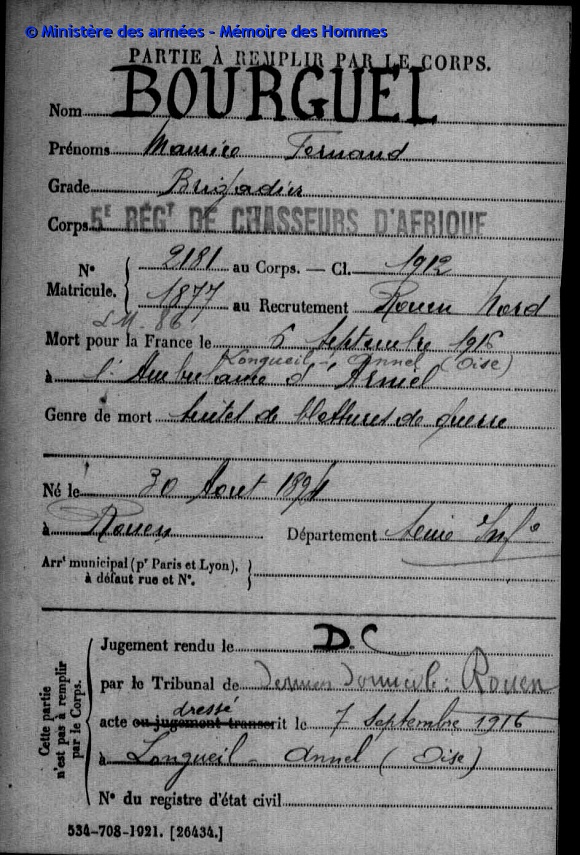 © Ministère des armées - Mémoire des Hommes
PARTIE À REMPLIR PAR LE CORPS.
Nom BOURGUEL
Prénoms Maurice Fernand
Grade Brigadier
Corps 5E RÉGT DE CHASSEURS D'AFRIQUE
N° Matricule. { 2181 au Corps. — Cl. 1912
1877 au Recrutement Rouen Nord
Mort pour la France le 6 Septembre 1916
Longueil Annel (Oise)
à l'Ambulance d'Annel
Genre de mort suites de blessures de guerre
Né le 30 Aout 1894
à Rouen Département Seine Infre
Arrt municipal (pr Paris et Lyon), }
à défaut rue et N°.
Cette partie n'est pas à remplir par le Corps.
Jugement rendu le D.C
par le Tribunal de Dernier domicile : Rouen
dressé
acte ou jugement transcrit le 7 Septembre 1916
à Longueil - Annel (Oise)
N° du registre d'état civil
534-708-1921. [26434.]